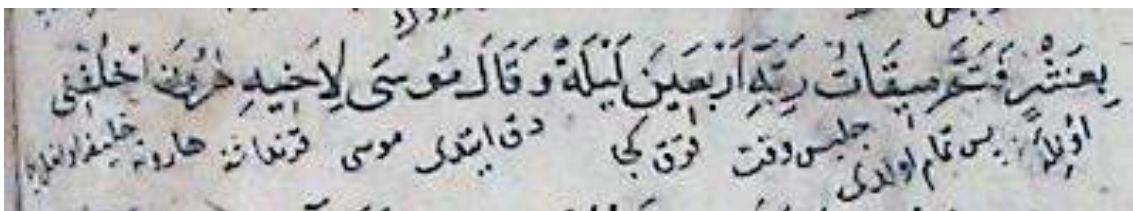 بِعَشْرٍ فَتَمَّ مِيقَاتُ رَبِّهِ اَرْبَعِينَ لَيْلَةً وَقَالَ مُوسَى لِاَخِيهِ هٰرُونَ اخْلُفْنِى
اونله پس تمام اولدى وقت قرق كجه دق ايتدى موسى قرنداشنه هارونه